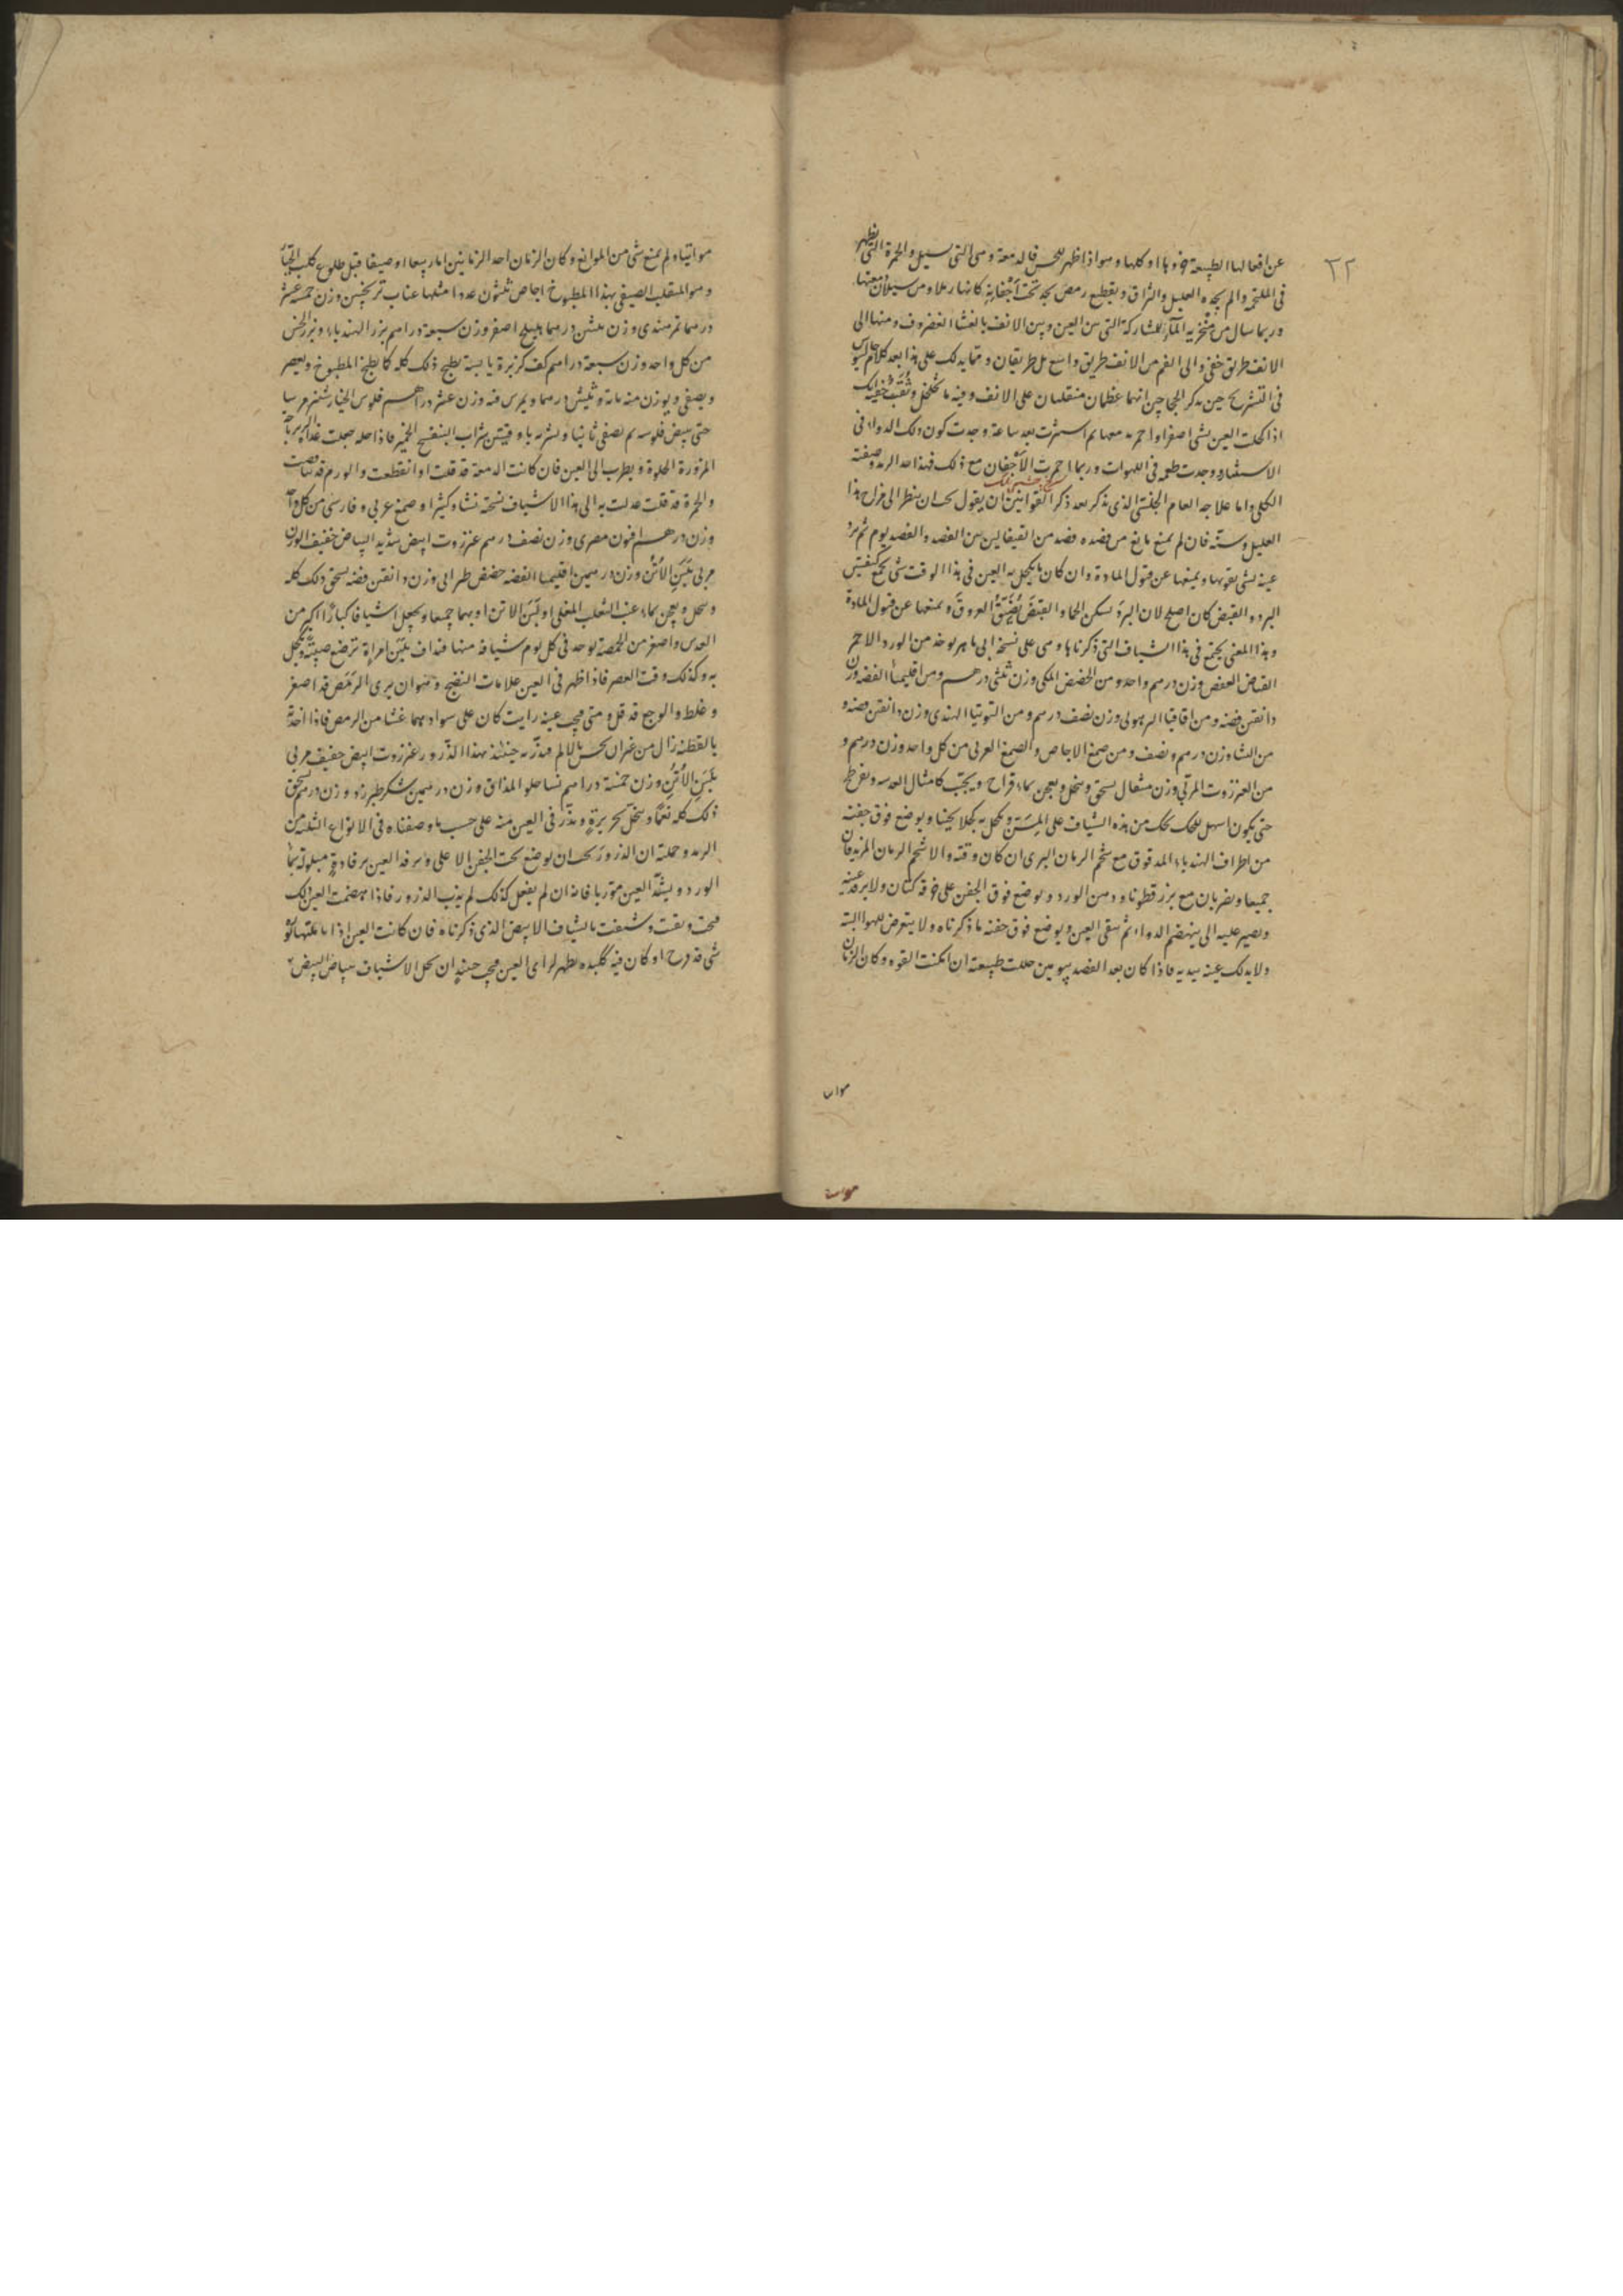 ٢٢
عن افعالها الطبيعة جزوها او كلها وهو اذا ظهر للحس فاله معة وهى التى تسيل والحمرة التى تظهر
فى الملتحمة والم يجده العليل والتزاق وبقطع رمص يجد تحت اجفانه كانها رملا ومن سيلان معتها
وربما سال من منخريه المآء للمشاركة التى بين العين وبين الانف بالغشا الغضروف ومنها الى
الانف طريق خفى والى الفم من الانف طريق واسع بل طريقان ومما يدلك على هذا بعد كلام جالينوس
فى التشريح حين يذكر الحاجبين انهما عظمان منقلبان على الانف وفيه ما تخلخل وثقب خفية انك
اذا كحلت العين بشى اصفر او احمر به معها ثم استنثرت بعد ساعة وجدت كون ذلك الدواء فى
الاستنثار ووجدت طعمه فى اللهوات وربما احمرت الاجفان مع ذلك فهذا حد الرمد وصفته
الكلى واما علاجه العام الجنسى الذى يذكر بعد ذكر القوانين ان يقول يجب ان ينظر الى مزاج هذا
العليل وسنه فان لم يمنع مانع من فصده فصد من القيفالين بين الفصد والفصد يوم ثم يبرد
عينه بشى يقويها ويمنعها عن قبول المادة وان كان ما يكحل به العين فى هذا الوقت شى يجمع كيفيتين
البرد والقبض كان اصلح لان البرد يسكن الحما والقبض يضيق العروق ويمنعها عن قبول المادة
وهذا المعنى يجتمع فى هذا الشياف التى ذكرناها وهى على نسخة ابى ماهر يوخذ من الورد الاحمر
القابض العفص وزن درهم واحد ومن الحضض المكى وزن ثلثى درهم ومن اقليميا الفضة وزن
دانقين فضة ومن اقاقيا الرهولى وزن نصف درهم ومن التوتيا الهندى وزن دانقين فضة و
من النشا وزن درهم ونصف ومن صمغ الاجاص والصمغ العربى من كل واحد وزن درهم و
من العنزروت المربى وزن مثقال يسحق وينخل ويعجن بماء قراح ويحبب كامثال العدسه ويفرطح
حتى يكون اسهل للحك يحك من هذه الشياف على المسن ويكحل به كحلا يخينا ويوضع فوق جفنه
من اطراف الهندباء المدقوق مع شحم الرمان البرى ان كان وقته والا شحم الرمان المز يدقان
جميعا ويضربان مع بزرقطونا ودهن الورد ويوضع فوق الجفن على خرقة كتان ولا يرفد عينيه
ويصير عليه الى ينهضم الدواء ثم ينقى العين ويوضع فوق جفنه ما ذكرناه ولا يتعرض للهوا البتة
ولا يدلك عينه بيديه فاذا كان بعد الفصد بيومين حللت طبيعته ان امكنت القوه وكان الزمان
مواتيا ولم يمنع شى من الموانع وكان الزمان احد الزمانين اما ربيعا او صيفا قبل طلوع كلب الجبار
وهو المنقلب الصيفى بهذا المطبوخ اجاص ثلثون عددا مثلها عناب ترنجبين وزن خمسة عشر
درهما تمر هندى وزن ثلثين درهما هليلج اصفر وزن سبعة دراهم بزر الهندباء وبزر الخس
من كل واحد وزن سبعة دراهم كف كزبرة يابسة يطبخ ذلك كله كما يطبخ المطبوخ ويعصر
ويصفى ويوزن منه مائة وثلثين درهما ويمرس فيه وزن عشر دراهم فلوس الخيار شنبر مرسا
حتى يبيض فلوسه ثم يصفى ثانيا ويشربه باوقيتين شراب البنفسج الخيم فاذا حله جعلت غذاه الزيرباجة
المزورة الحلوة ويطرب الى العين فان كانت الدمعة قد قلت او انقطعت والورم قد تناقصت
والحمرة قد قلت عدلت به الى هذا الاشياف نسخته نشا وكثيرا وصمغ عربى وفارسى من كل واحد
وزن درهم افيون مصرى وزن نصف درهم عنزروت ابيض شديد البياض خفيف الوزن
مربى بلبن الاتن وزن درهمين اقليميا الفضة حضض طرابى وزن دانقين فضه يسحق ذلك كله
وينخل ويعجن بماء عنب الثعلب المغلى او بلبن الاتن او بهما جميعا ويجعل اشيافا كبارا اكبر من
العدس واصغر من الحمصة يوخذ فى كل يوم شيافة منها فيداف بلبن امراة ترضع صبية ويكحل
به وكذلك وقت العصر فاذا ظهر فى العين علامات النضج وهو ان يرى الرمص قد اصفر
وغلظ والوجع قد قل ومتى فتحت عينه رايت كان على سوادهما غشا من الرمص فاذا اخذته
بالقطنة زال من غير ان يحس بالالم فيذر به حينئذ بهذا الذرور عنزروت ابيض خفيف مربى
بلبن الاتن وزن خمسة دراهم نشا حلو المذاق وزن درهمين سكر طبرزد وزن درهم يسحق
ذلك كله نعما وينخل بحريرة ويذر فى العين منه على حسب ما وصفناه فى الانواع الثلثة من
الرمد وجملته ان الذرور يجب ان يوضع تحت الجفن الاعلى ويرفد العين برفادة مبلولة بماء
الورد ويشد العين متوربا فانه ان لم يفعل كذلك لم يذب الذرور فاذا انهضمت العين لك
فتحت ونقت وشيفت بالشياف الابيض الذى ذكرناه فان كانت العين اذا ما قلبتها تؤ
شى قد قرح او كان فيه كلبده يظهر لراى العين فيجب حينئذ ان يحل الاشياف ببياض البيض
موات
موات